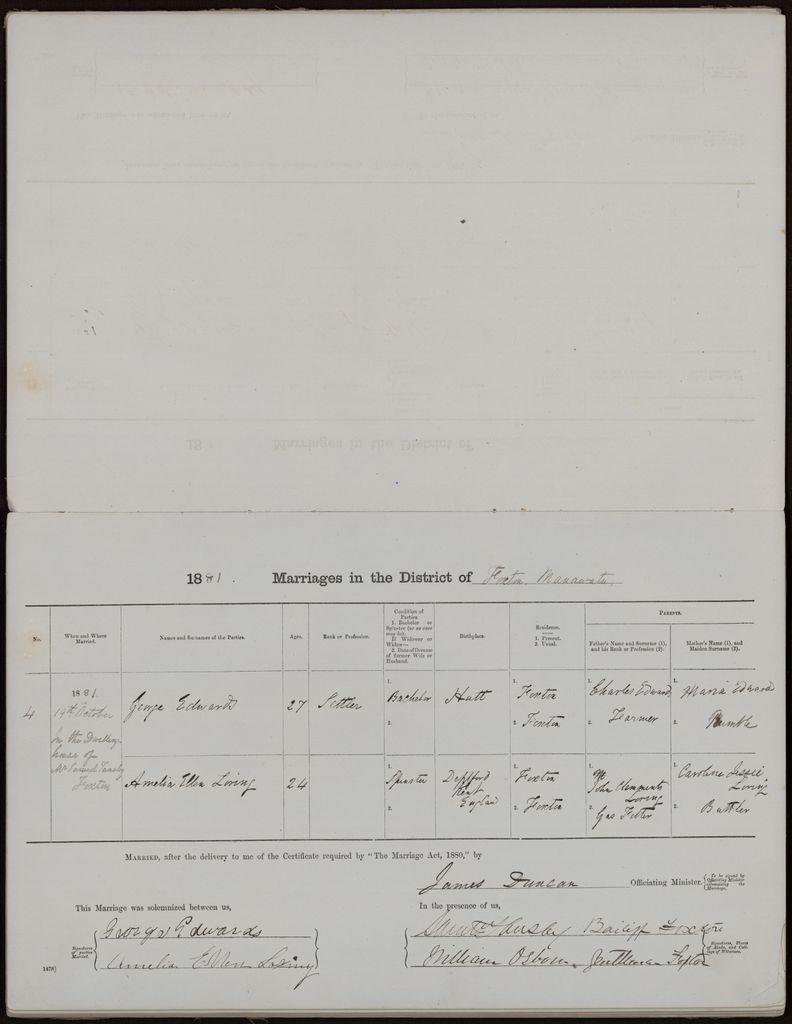 1881. Marriages in the District of Foxton Manawatu
No.
When and Where Married.
Names and Surnames of the Parties.
Ages.
Rank or Profession.
Condition of Parties
1. Bachelor or Spinster (or as case may be).
If Widower or Widow—
2. Date of Decease of former Wife or Husband.
Birthplace.
Residence.
1. Present.
2. Usual.
PARENTS.
Father's Name and Surname (1), and his Rank or Profession (2).
Mother's Name (1), and Maiden Surname (2).
4
1881.
14th October
In the Dwelling
house of
Mr Samuel
Foxton
George Edwards
27
Settler
1. Bachelor
2.
Hutt
1. Foxton
2. Foxton
1. Charles Edward
2. Farmer
1. Maria Edward
2. Rumble
Amelia Ellen Loving
24
1. Spinster
2.
Deptford
Kent
England
1. Foxton
2. Foxton
1. John Clements
Loving
2. Gas Fitter
1. Caroline Jessie
Loving
2. Buttler
MARRIED, after the delivery to me of the Certificate required by "The Marriage Act, 1880," by
James Duncan Officiating Minister. {To be signed by Officiating Minister solemnizing the Marriage.
This Marriage was solemnized between us,
Signatures of parties Married.
George Edwards
Amelia Ellen Loving
In the presence of us,
Bailiff Foxton
William Osborn. Gentleman Foxton
Signatures, Places of Abode, and Callings of Witnesses.
1478]